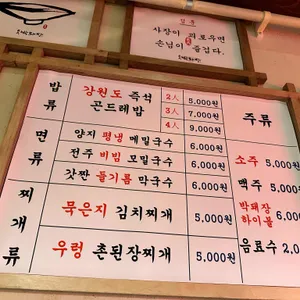 사장이 괴로우면
손님이 즐겁다.
밥류
강원도 즉석
곤드레밥
2人 5,000원
3人 7,000원
4人 9,000원
면류
양지 평냉 메밀국수 6,000원
전주 비빔 모밀국수 6,000원
갓짠 들기름 막국수 6,000원
찌개류
묵은지 김치찌개 5,000원
우렁 촌된장찌개 5,000원
주류
소주 5,000
맥주 5,000
박대장
하이볼 6,000
음료수 2,0